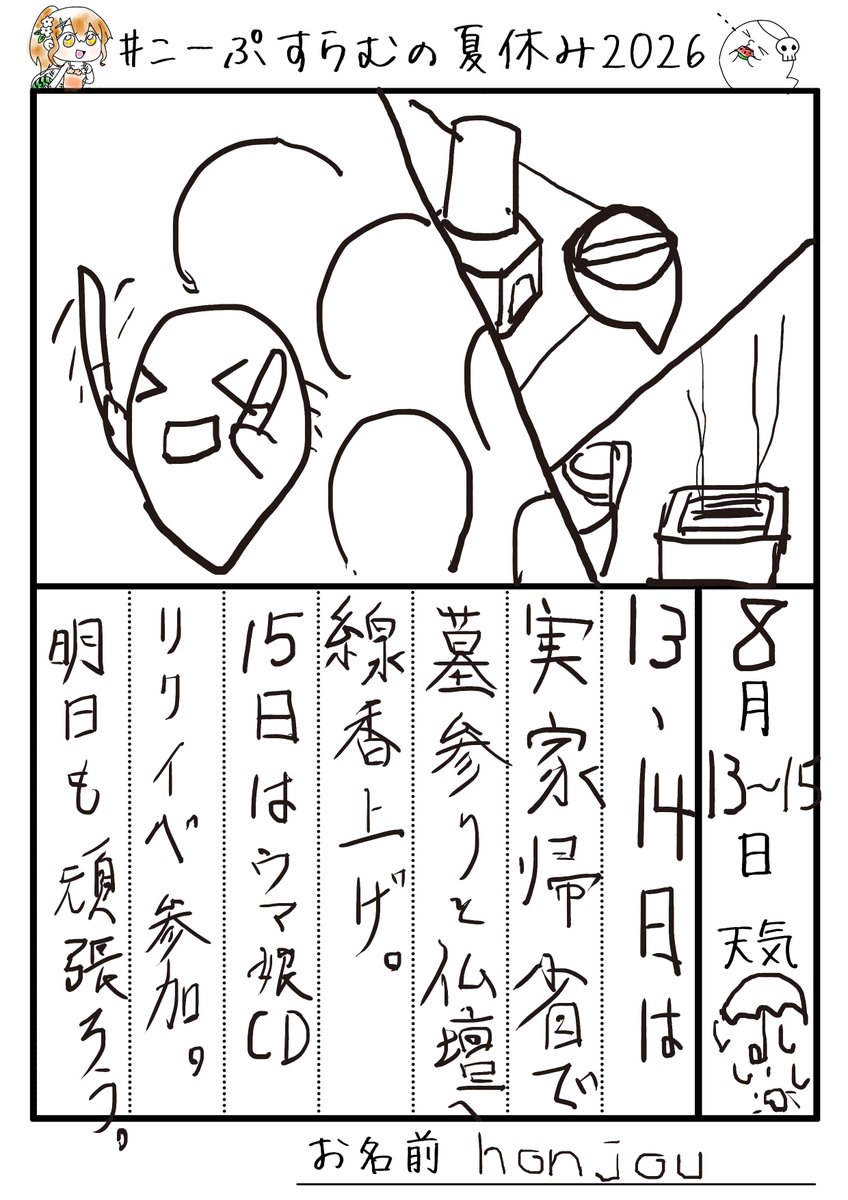 #こーぷすらむの夏休み2026
8月13~15日 天気
13、14日は
実家帰省で
墓参りと仏壇へ
線香上げ。
15日はウマ娘CD
リリイベ参加。
明日も頑張ろう。
お名前 honjou